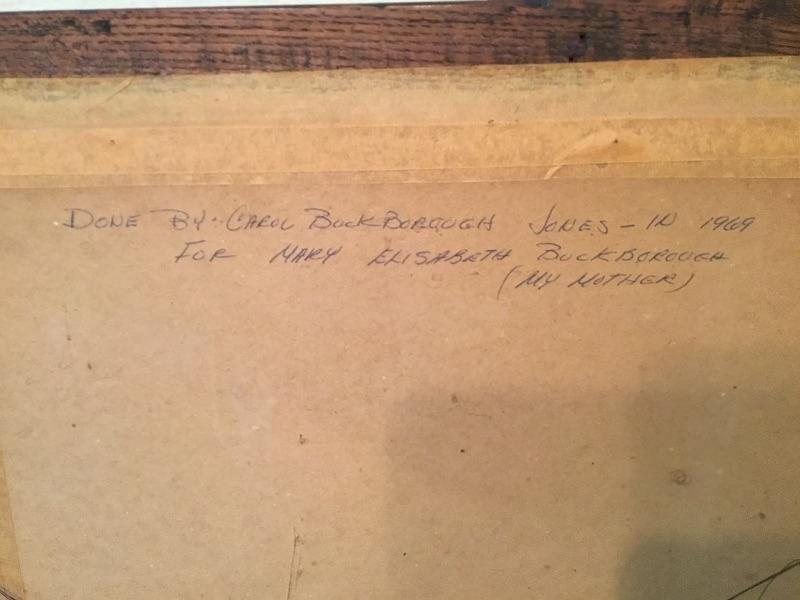 DONE BY: CAROL BUCKBOROUGH JONES - IN 1969
FOR MARY ELISABETH BUCKBOROUGH
(MY MOTHER)